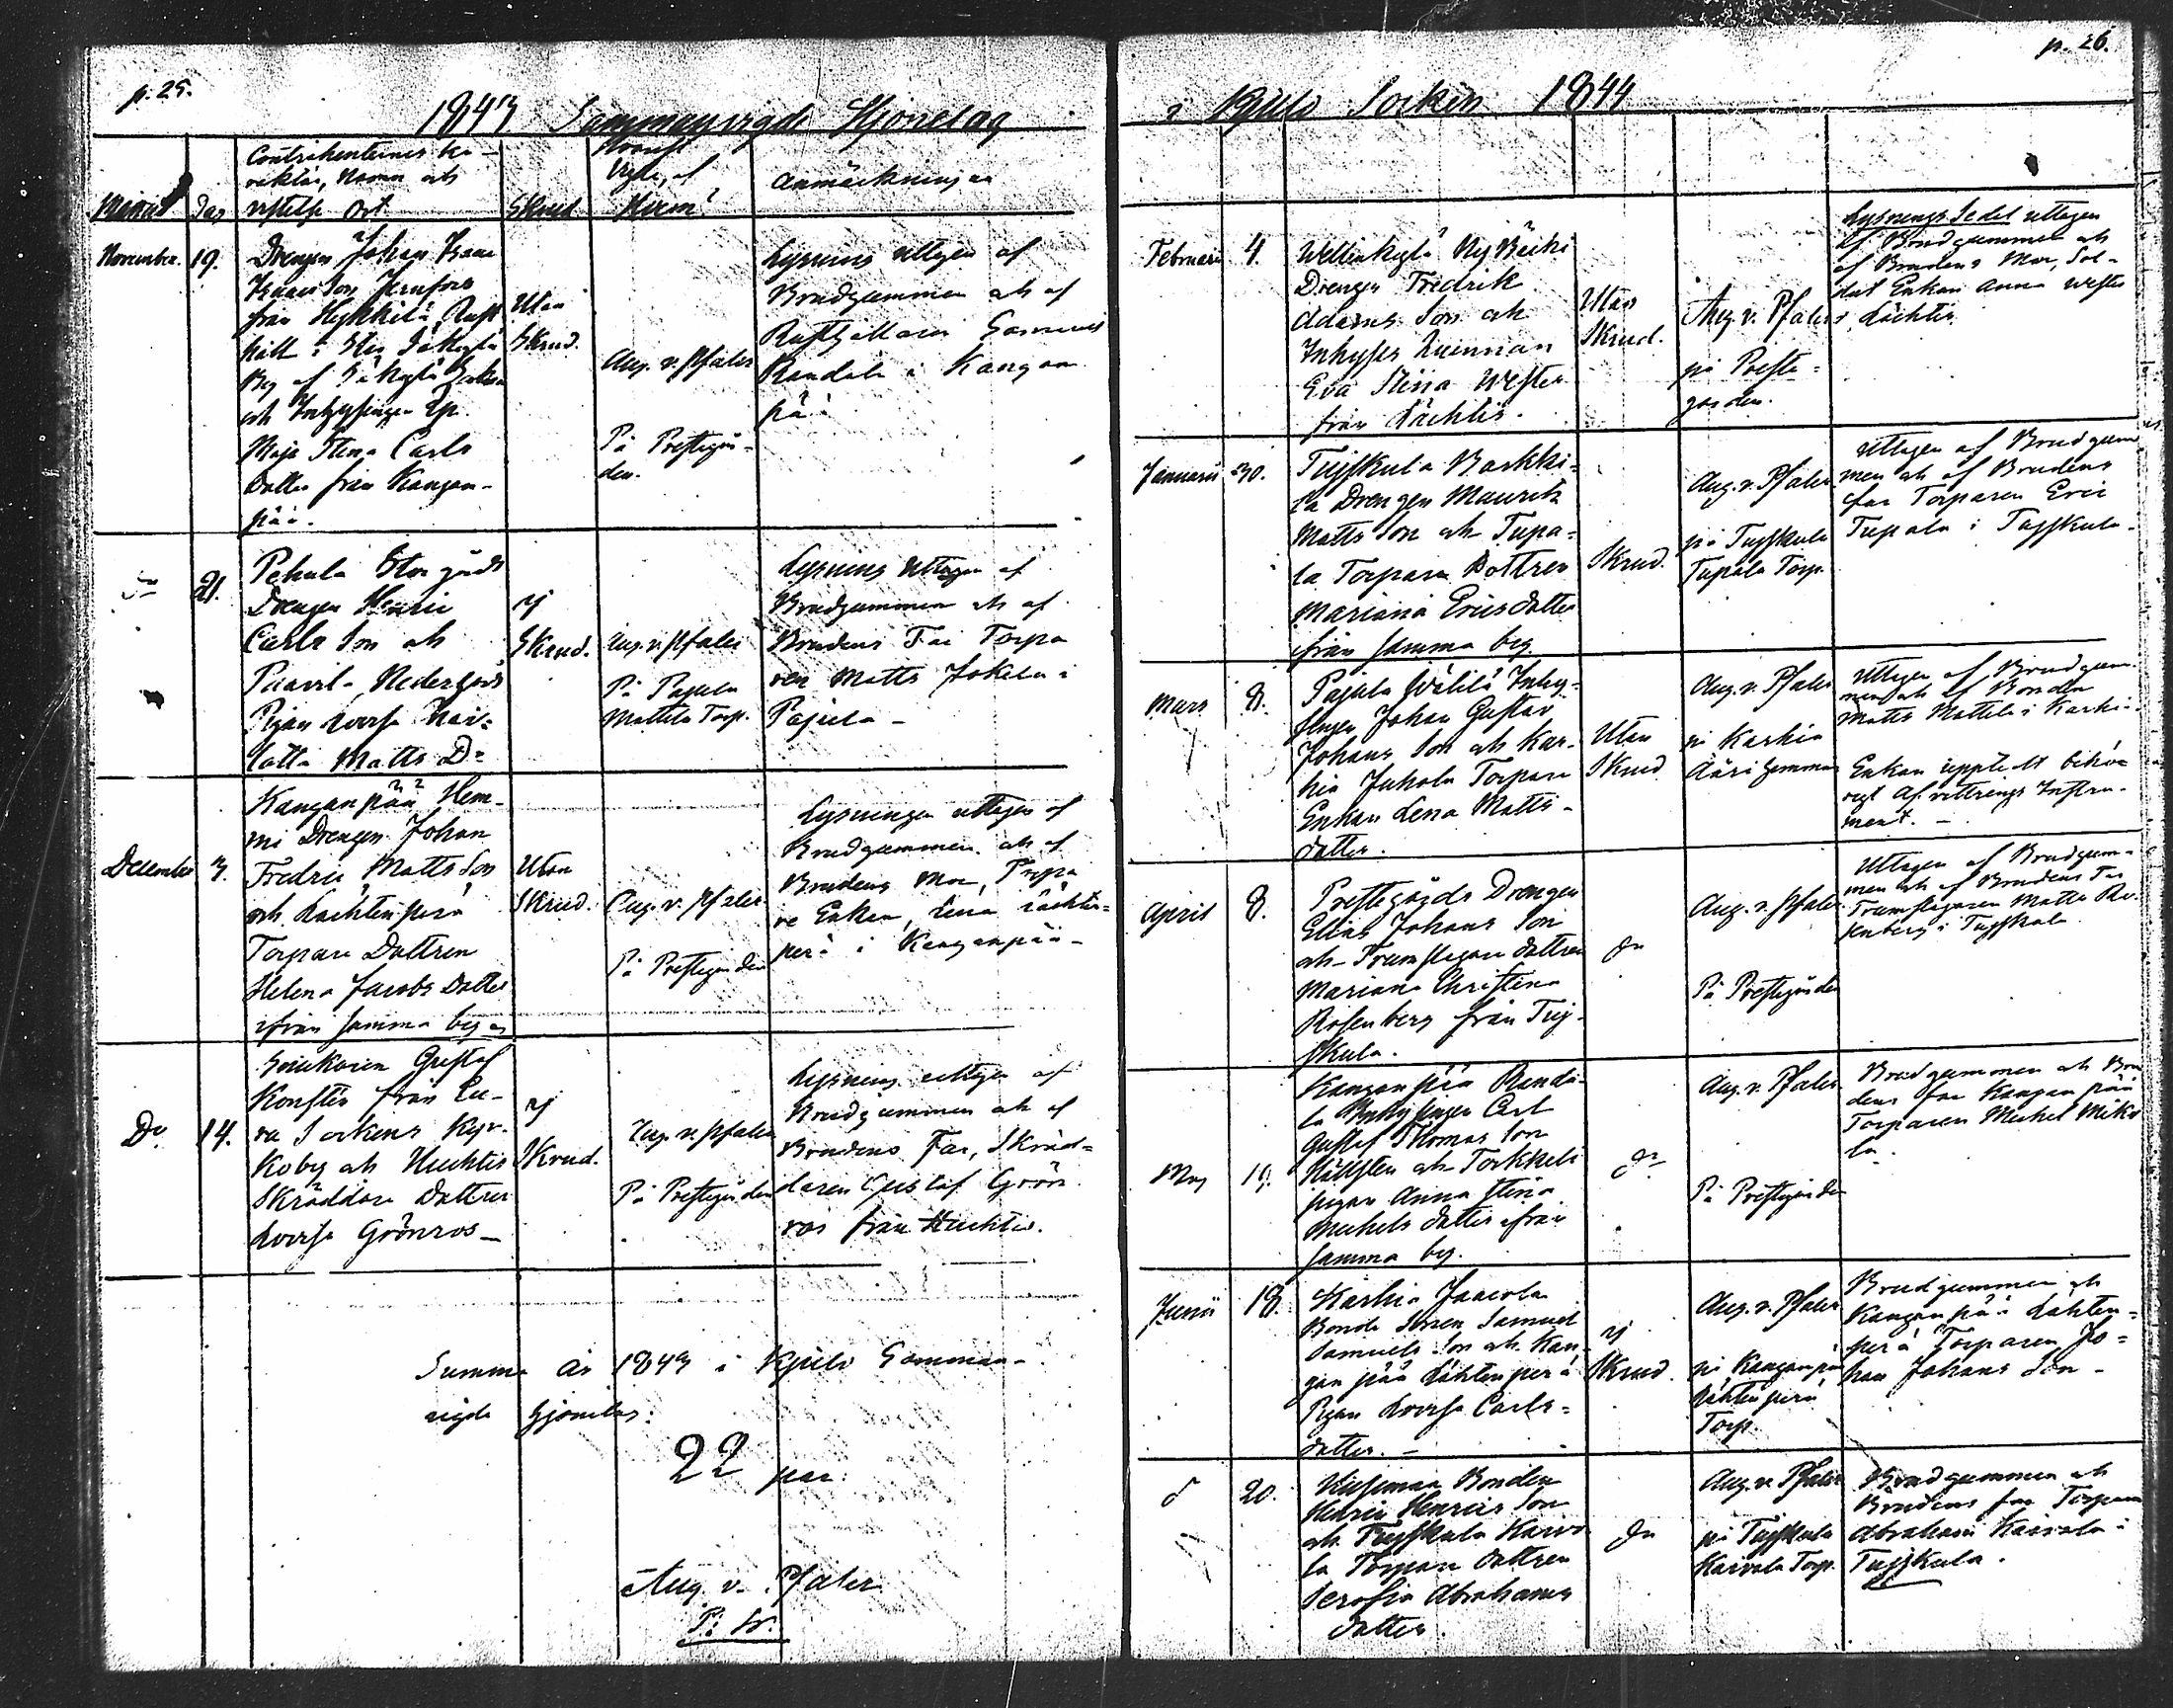 p. 25.
1843 Sammanvigde Hjonelag
Månad
Dag
Contrahenternes ka-
raktär, Namn och
vistelse Ort
Skrud
Hvarest
Vigde, af
Hvem?
Anmärkningar
November. 19.
Drengen Johan Isaac
Isaacs Son Jernfors
från Hykkilä Rust
håll i Stor Säkylä
By af Säkylä Sokn
och Inhyses
Maja Stena Carls
Dotter från Kangan-
pää.
Utan
Skrud.
Aug. v. Pfaler
På Prestegår-
den.
Lysning uttagen af
Brudgummen och af
Rusthållaren
Randala i Kangan
pää
Do 21.
Pehula Storgårds
Drengen Henric
Carls Son och
Paavila Nedergårds
Pigan Lovisa
lotta Matts Dr
ej
Skrud.
Aug. v. Pfaler
På Pajula
Mattila Torp.
Lysning uttagen af
Brudgummen och af
Brudens Far Torpa
ren Matts Jokela i
Pajula -
December 3.
Kanganpää Hem-
mi Drengen Johan
Fredric Matts Son
och Lächtenperä
Torpare Dottren
Helena Jacobs Dotter
ifrån samma by
Utan
Skrud.
Aug. v. Pfaler
På Prestegården
Lysningen uttagen af
Brudgummen och af
Brudens Mor, Torpa
re Enkan, Lena Lächten-
perä i Kanganpää -
Do 14.
Gustaf
Konstén från Eu-
ra Sockens Kyr-
koby och Huchtis
Skräddare Dottren
Lovisa Grönros -
ej
Skrud.
Aug. v. Pfaler
På Prestegården
Lysning uttagen af
Brudgummen och af
Brudens Far, Skräd-
daren Gustaf Grön
ros från Huchtis.
Summa år 1843 i Kjulo Samman-
vigde Hjonelag:
22 par.
Aug. v. Pfaler
p. 26.
i Kjulo Socken 1844
Februari 4.
Drengen Fredrik
Adams Son och
Inhyses Qvinnan
Eva Stina Wester
från Lächtis.
Utan
Skrud.
Aug. v. Pfaler
på Preste-
gården.
Lysnings Sedel uttagen
af Brudgummen och
af Brudens Mor, Sol-
dat Enkan Anna Wester
i Lächtis
Januarii 30.
Tujskula Barkki-
la Drengen Maurits
Matts Son och Tupa-
la Torpare Dottren
Mariana Ericsdotter
från samma by.
Skrud.
Aug. v. Pfaler
på Tujskula
Tupala Torp.
Uttagen af Brudgum
men och af Brudens
far Torparen Eric
Tupala i Tujskula.
Mars 8.
Pajula Wälilä Inhy-
singen Johan Gustav
Johans Son och Kar-
hia Juhola Torpare
Enkan Lena Matts-
dotter.
Utan
Skrud
Aug. v. Pfaler
på Karhia
Aug. v. Pfaler
Uttagen af Brudgum-
men och af Bonden
Matts Mattila i Karhia.
Enkan upptedt behöri
ligt Afvittrings Instru-
ment. -
April 8.
Prestegårds Drengen
Elias Johans Son
och Trumslagare Dottren
Mariana Christina
Rosenberg från Tuj-
skula.
Do
Aug. v. Pfaler
På Prestegården
Uttagen af Brudgum-
men och af Brudens Far
Trumslagaren Matts Ro-
senberg i Tujskula
Maj 19.
Kanganpää Randa-
la Inhysingen Carl
Gustaf Thomas Son
Hällsten och Torkkeli
pigan Anna Stina
Michels dotter ifrån
samma by.
Do
Aug. v. Pfaler
På Prestegården
Brudgummen och Bru
dens far Kanganpää
Torparen Michel Miko
la.
Junii 18.
Karhia Jaacola
Bonde Sonen Samuel
Samuels Son och Kan-
gan pää Lähtenperä
Pigan Lovisa Carls-
dotter. -
ej
Skrud.
Aug. v. Pfaler
på Kanganpää
Lähtenperä
Torp.
Brudgummen och
Kanganpää Lähten-
perä Torparen Jo-
han Johans Son -
Do 20.
Bonden
Henric Henrics Son
och Tujskula Karvo
la Torpare dottren
Serafia Abrahams
dotter.
Do
Aug. v. Pfaler
på Tujskula
Karvola Torp.
Brudgummen och
Brudens far Torparen
Abraham Karvola i
Tujskula.